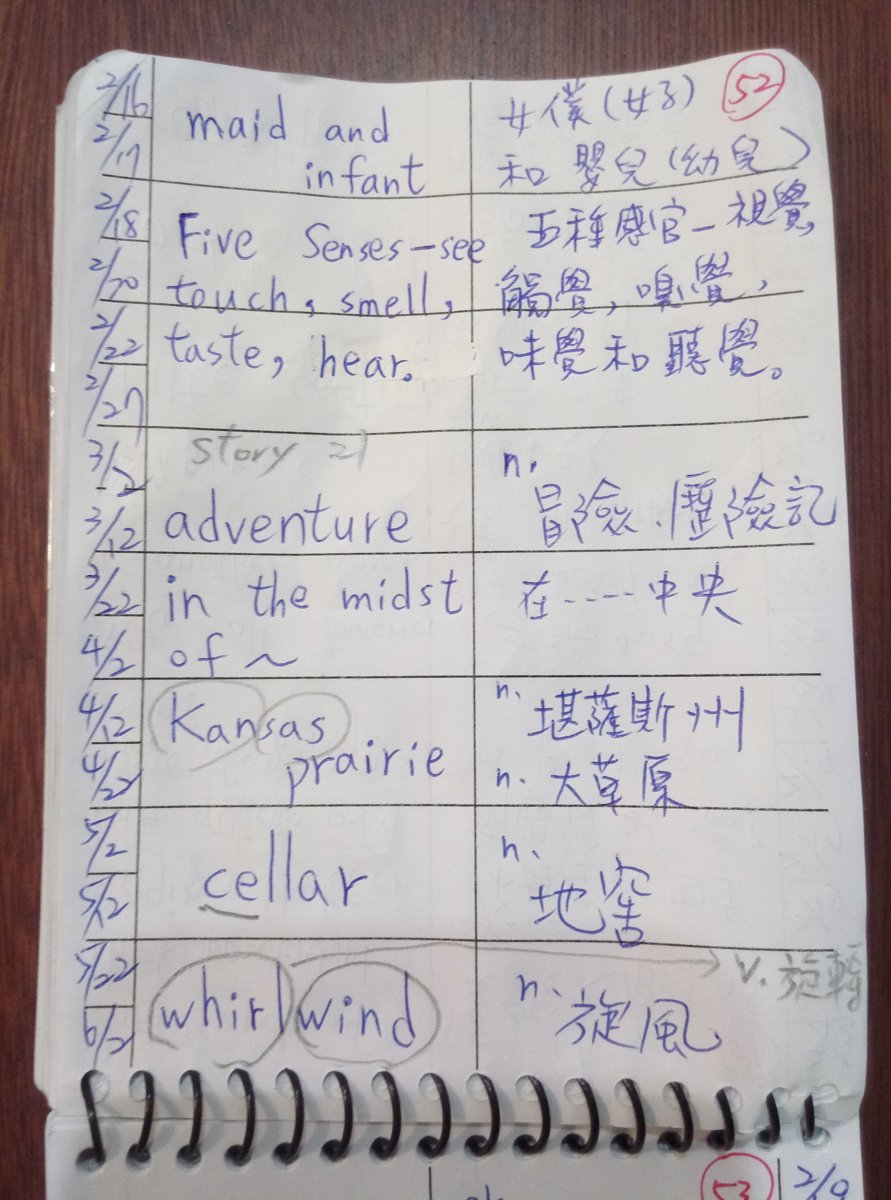 2/16
2/17
2/18
2/20
2/22
2/27
3/2
3/12
3/22
4/2
4/12
4/22
5/2
5/12
5/22
6/2
maid and
infant
女僕(女子)
和嬰兒(幼兒)
52
Five Senses-see
touch, smell,
taste, hear.
五種感官-視覺,
觸覺,嗅覺,
味覺和聽覺。
story 21
adventure
n.
冒險、歷險記
in the midst
of ~
在----中央
Kansas
prairie
n. 堪薩斯州
n. 大草原
cellar
n.
地窖
whirlwind
n. 旋風
v. 旋轉
53
2/9